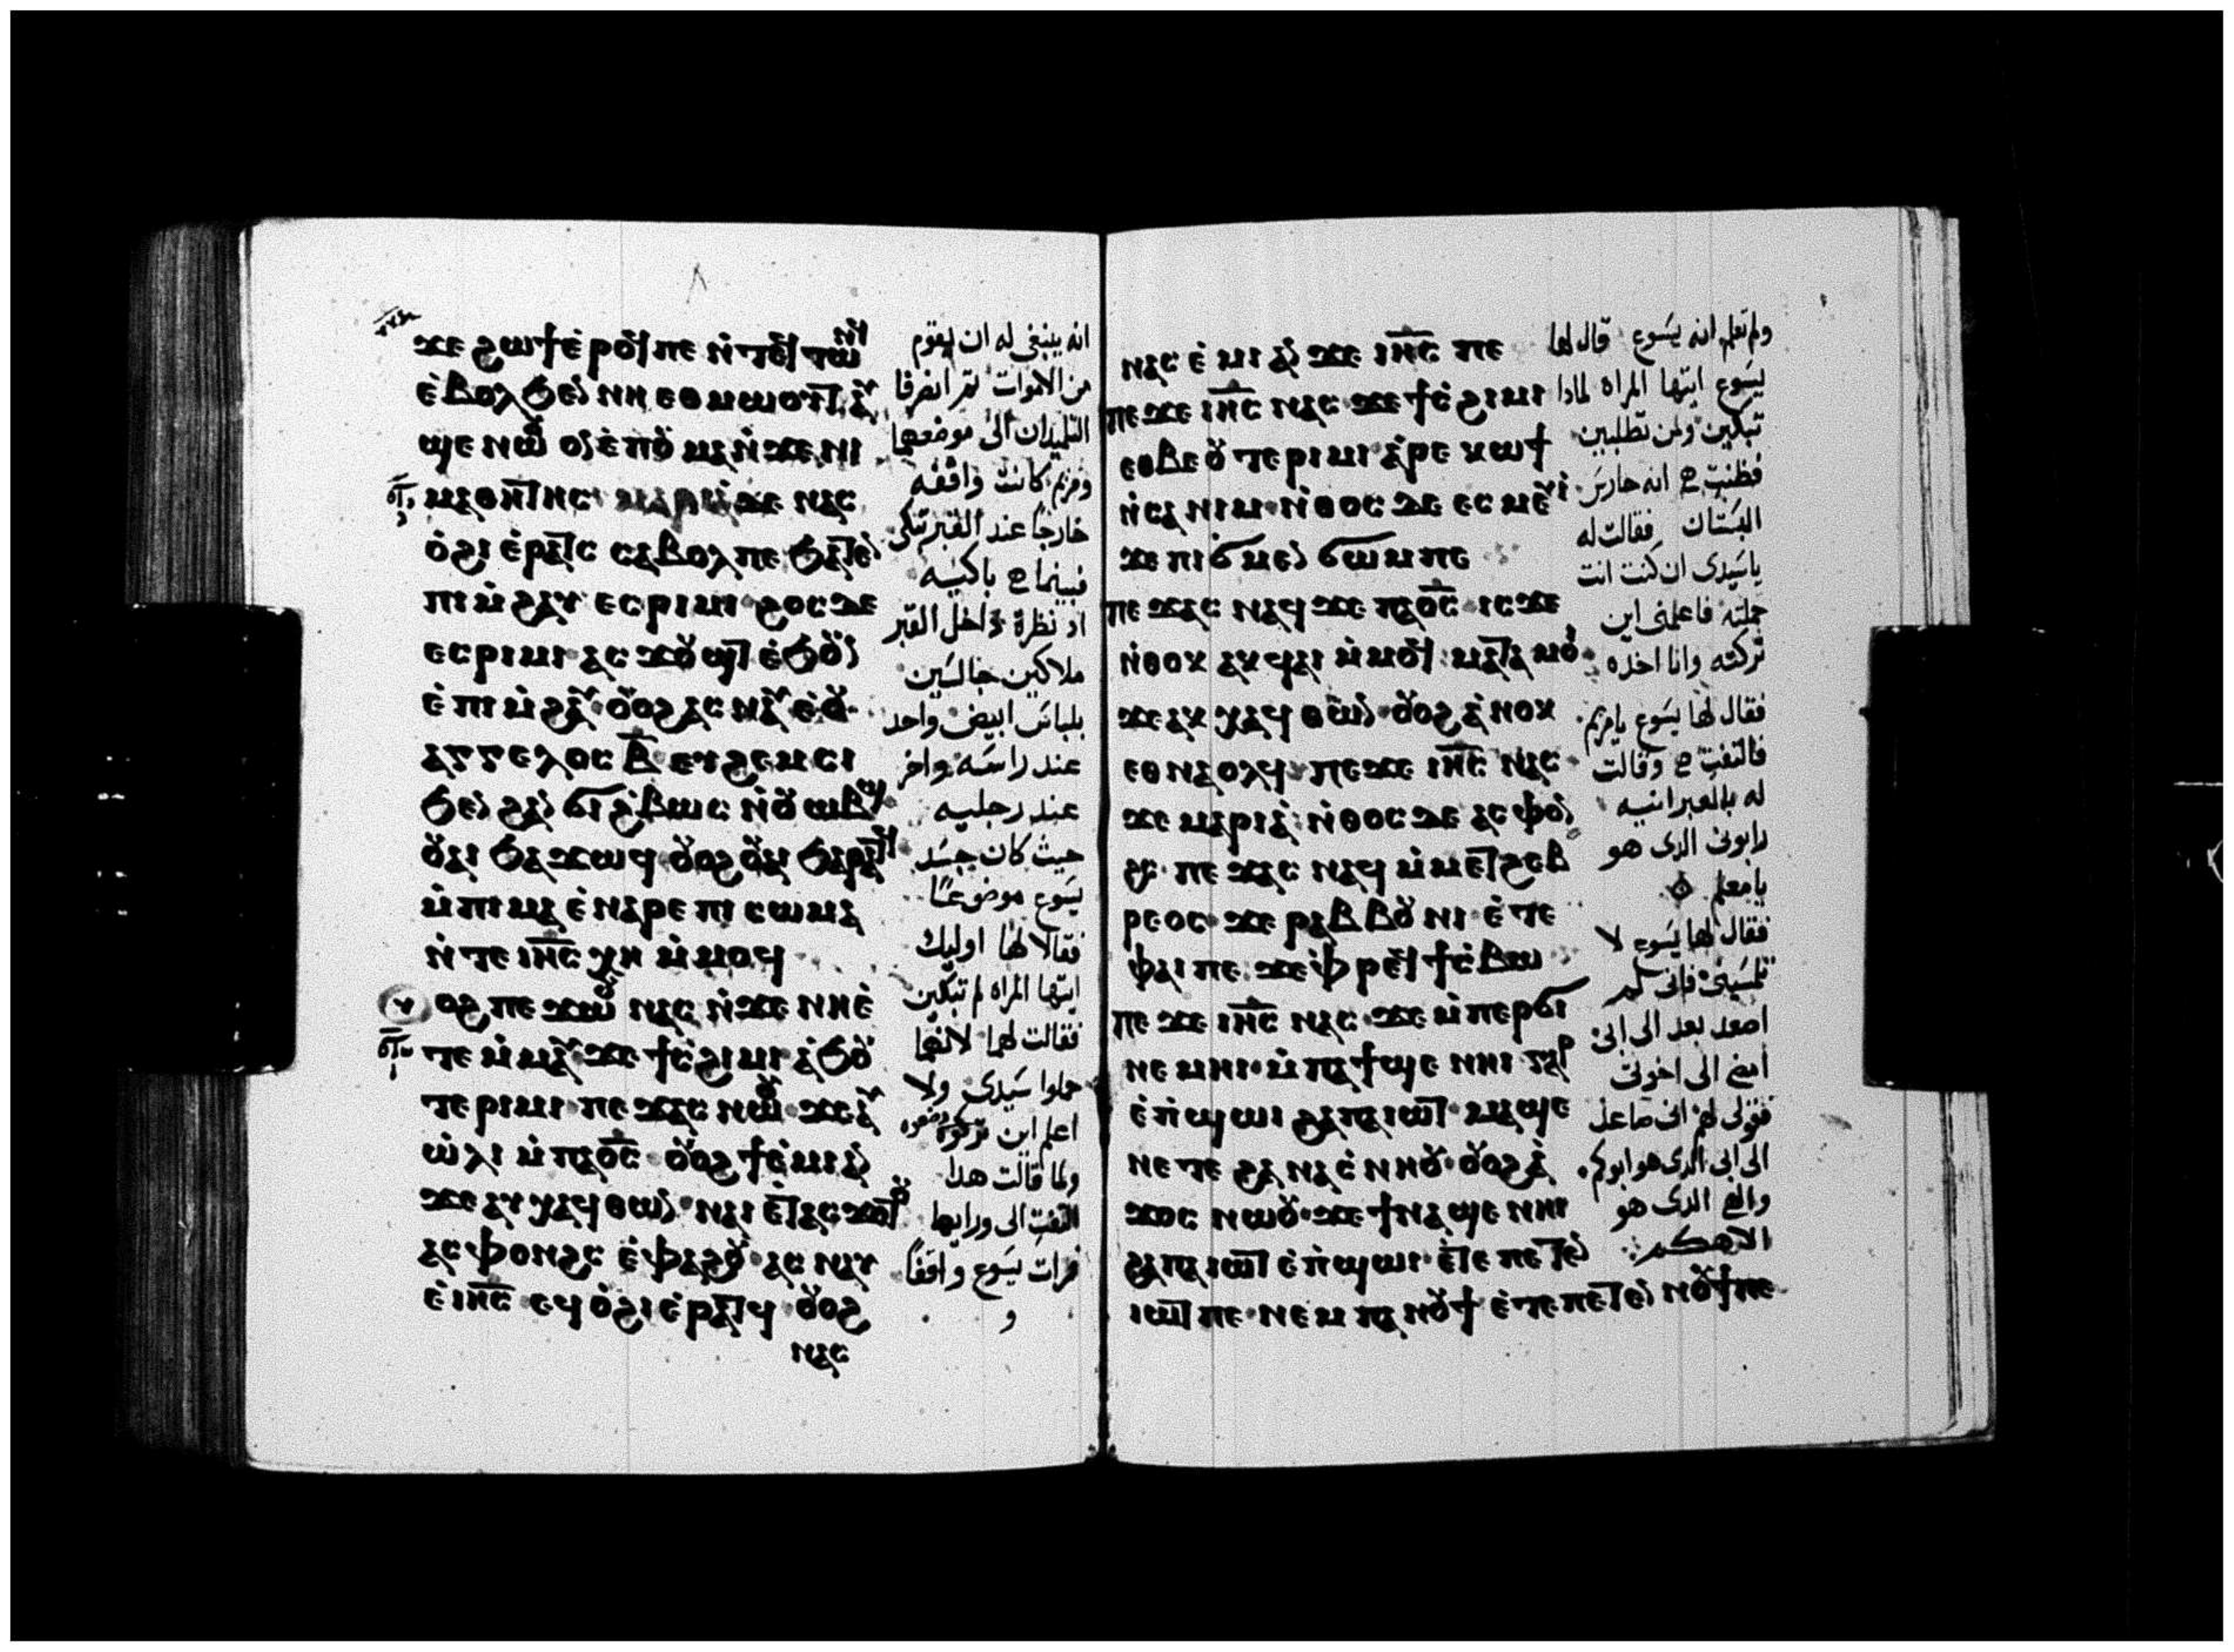 ϫⲉ ϩⲱϯ ⲉ̀ⲣⲟϥ ⲡⲉ ⲛ̀ⲧⲉϥⲧⲱⲛϥ
ⲉ̀ⲃⲟⲗ ϧⲉⲛ ⲛⲏ ⲉⲑⲙⲱⲟⲩⲧ ⲁⲩ
ϣⲉ ⲛⲱⲟⲩ ⲟⲛ ⲉ̀ⲡⲟⲩⲙⲁ ⲛ̀ϫⲉ ⲛⲓ
ⲙⲁⲑⲏⲧⲏⲥ ⲙⲁⲣⲓⲁ ⲇⲉ ⲛⲁⲥ
ⲟ̀ϩⲓ ⲉ̀ⲣⲁⲧⲥ ⲥⲁⲃⲟⲗ ⲡⲉ ϧⲁⲧⲉⲛ
ⲡⲓⲙ̀ϩⲁⲩ ⲉⲥⲣⲓⲙⲓ ϩⲟⲥ ⲇⲉ
ⲉⲥⲣⲓⲙⲓ ⲁⲥϫⲟⲩϣⲧ ⲉ̀ϧⲟⲩⲛ
ⲉ̀ⲡⲓⲙ̀ϩⲁⲩ ⲟⲩⲟϩ ⲁⲥⲛⲁⲩ ⲉ̀ⲟⲩ
ⲁⲅⲅⲉⲗⲟⲥ ⲃ̅ ⲉⲩϩⲉⲙⲥⲓ
ϧⲉⲛ ϩⲁⲛ ϩⲉⲃⲱⲥ ⲛ̀ⲟⲩⲱⲃϣ
ⲟⲩⲁⲓ ϧⲁϫⲱϥ ⲟⲩⲟϩ ⲟⲩⲁⲓ ϧⲁⲣⲁⲧϥ
ⲙ̀ⲡⲓⲙⲁ ⲉ̀ⲛⲁⲣⲉ ⲡⲓⲥⲱⲙⲁ
ⲛ̀ⲧⲉ ⲓⲏ̅ⲥ̅ ⲭⲏ ⲙ̀ⲙⲟϥ
ⲟⲩⲟϩ ⲡⲉϫⲱⲟⲩ ⲛⲁⲥ ⲛ̀ϫⲉ ⲛⲏ ⲉ̀
ⲧⲉ ⲙ̀ⲙⲁⲩ ϫⲉ ϯⲥϩⲓⲙⲓ ⲁ̀ϧⲟ
ⲧⲉⲣⲓⲙⲓ ⲡⲉϫⲁⲥ ⲛⲱⲟⲩ ϫⲉ ⲁⲩ
ⲱ̀ⲗⲓ ⲙ̀ⲡⲁⲟ̅ⲥ̅ ⲟⲩⲟϩ ϯⲉ̀ⲙⲓ ⲁⲛ
ϫⲉ ⲁⲩⲭⲁϥ ⲑⲱⲛ ⲛⲁⲓ ⲉⲧⲁⲥϫⲟⲧⲟⲩ
ⲁⲥⲫⲟⲛϩⲥ ⲉ̀ⲫⲁϩⲟⲩ ⲁⲥⲛⲁⲩ
ⲉ̀ⲓⲏ̅ⲥ̅ ⲉϥⲟ̀ϩⲓ ⲉ̀ⲣⲁⲧϥ ⲟⲩⲟϩ
ⲛⲁⲥ
انه ينبغي له ان يقوم
من الاموات ثم انصرفا
التلميذان الى موضعهما
ومريم كانت واقفه
خارجا عند القبر تبكي
فبينما هي باكيه
اد نظرة داخل القبر
ملاكين جالسين
بلباس ابيض واحد
عند راسه واخر
عند رجليه
حيث كان جسد
يسوع موضوعا
فقالا لها اوليك
ايتها المراه لم تبكين
فقالت لهما لانهما
حملوا سيدي ولا
اعلم اين تركوه
ولما قالت هدا
التفت الى ورايها
فرات يسوع واقفا
و
ⲛⲁⲥⲉ̀ⲙⲓ ⲁⲛ ϫⲉ ⲓⲏ̅ⲥ̅ ⲡⲉ
ⲡⲉϫⲉ ⲓⲏ̅ⲥ̅ ⲛⲁⲥ ϫⲉ ϯⲥϩⲓⲙⲓ
ⲉⲑⲃⲉⲟⲩ ⲧⲉⲣⲓⲙⲓ ⲁ̀ⲣⲉ ⲕⲱϯ
ⲛ̀ⲥⲁ ⲛⲓⲙ ⲛ̀ⲑⲟⲥ ⲇⲉ ⲉⲥⲙⲉⲩⲓ
ϫⲉ ⲡⲓϭⲙⲉⲛϭⲱⲙ ⲡⲉ
ⲡⲉϫⲁⲥ ⲛⲁϥ ϫⲉ ⲡⲁⲟ̅ⲥ̅ ⲓⲥϫⲉ
ⲛ̀ⲑⲟⲕ ⲁⲕϥⲁⲓ ⲙ̀ⲙⲟϥ ⲙⲁⲧⲁⲙⲟⲓ
ϫⲉ ⲁⲕⲭⲁϥ ⲑⲱⲛ ⲟⲩⲟϩ ⲁ̀ⲛⲟⲕ
ⲉⲑⲛⲁⲟⲗϥ ⲡⲉϫⲉ ⲓⲏ̅ⲥ̅ ⲛⲁⲥ
ϫⲉ ⲙⲁⲣⲓⲁ̀ ⲛ̀ⲑⲟⲥ ⲇⲉ ⲁⲥⲫⲟⲛ
ϩⲥ ⲡⲉϫⲁⲥ ⲛⲁϥ ⲙ̀ⲙⲉⲧϩⲉⲃ
ⲣⲉⲟⲥ ϫⲉ ⲣⲁⲃⲃⲟⲩⲛⲓ ⲉ̀ⲧⲉ
ⲫⲁⲓ ⲡⲉ ϫⲉ ⲫⲣⲉϥϯⲥⲃⲱ
ⲡⲉϫⲉ ⲓⲏ̅ⲥ̅ ⲛⲁⲥ ϫⲉ ⲙ̀ⲡⲉⲣϭⲓ
ⲛⲉⲙⲏⲓ ⲙ̀ⲡⲁϯϣⲉ ⲛⲏⲓ ⲅⲁⲣ
ⲉ̀ⲡ̀ϣⲱⲓ ϩⲁ ⲡⲁⲓⲱⲧ ⲙⲁϣⲉ
ⲛⲉ ⲧⲉ ϩⲁ ⲛⲁⲥⲛⲏⲟⲩ ⲟⲩⲟϩ ⲁ̀
ϫⲟⲥ ⲛⲱⲟⲩ ϫⲉ ϯⲛⲁϣⲉ ⲛⲏⲓ
ϩⲁ ⲡⲁⲓⲱⲧ ⲉ̀ⲡ̀ϣⲱⲓ ⲉ̀ⲧⲉ ⲡⲉⲧⲉⲛ
ⲓⲱⲧ ⲡⲉ ⲛⲉⲙ ⲡⲁⲛⲟⲩϯ ⲉ̀ⲧⲉ ⲡⲉⲧⲉⲛⲛⲟⲩϯ ⲡⲉ
ولم تعلم انه يسوع قال لها
يسوع ايتها المراه لمادا
تبكين ولمن تطلبين
فظنت هي انه حارس
البستان فقالت له
ياسيدي ان كنت انت
حملته فاعلمني اين
تركته وانا اخده
فقال لها يسوع يامريم
فالتفت هي وقالت
له بالعبرانيه
رابوني الدي هو
يامعلم
فقال لها يسوع لا
تلمسيني فاني لم
اصعد بعد الى ابي
امضي الى اخوتي
فقولي لهم اني صاعد
الى ابي الدي هو ابوكم
والهي الدي هو
الاهكم